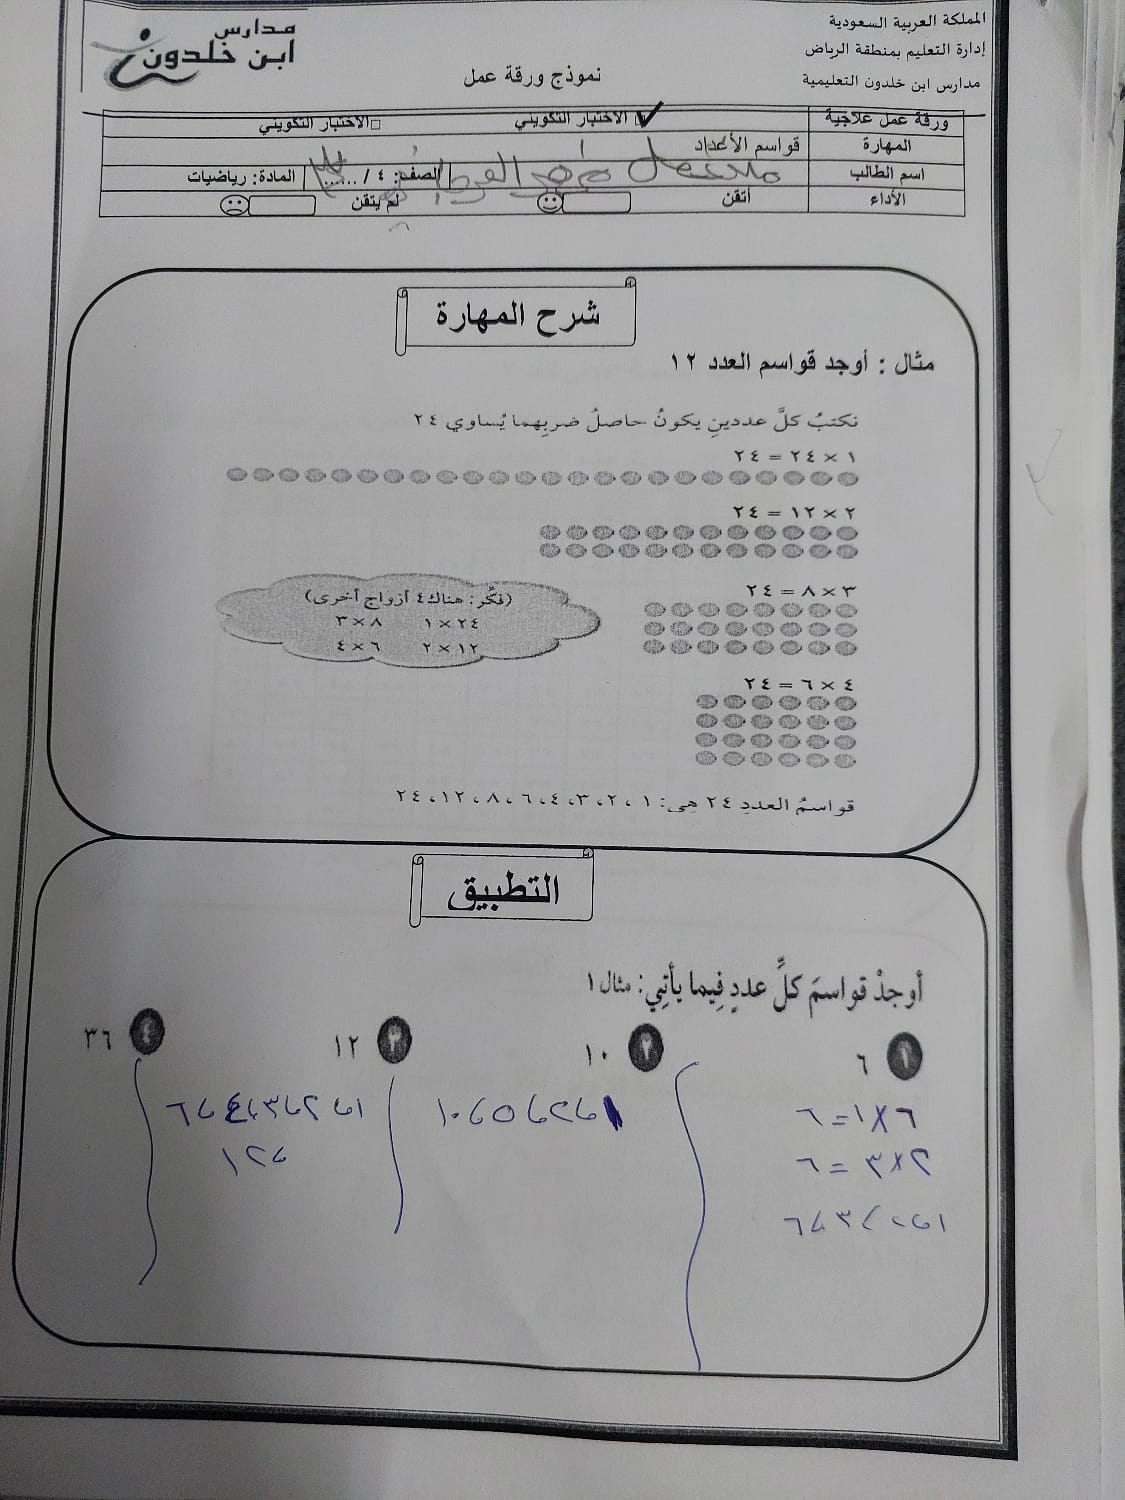 المملكة العربية السعودية
إدارة التعليم بمنطقة الرياض
مدارس ابن خلدون التعليمية
نموذج ورقة عمل
مدارس
ابن خلدون
ورقة عمل علاجية
الاختبار التكويني
الاختبار التكويني
المهارة
قواسم الأعداد
اسم الطالب
الصف: ٤ / ......
المادة: رياضيات
الأداء
أتقن
لم يتقن
شرح المهارة
مثال : أوجد قواسم العدد ١٢
نكتبُ كلَّ عددينِ يكونُ حاصلُ ضربِهما يُساوي ٢٤
١ × ٢٤ = ٢٤
٢ × ١٢ = ٢٤
٣ × ٨ = ٢٤
(فكّر: هناك ٤ أزواج أخرى)
٢٤ × ١ ٨ × ٣
١٢ × ٢ ٦ × ٤
٤ × ٦ = ٢٤
قواسمُ العددِ ٢٤ هِي: ١ ، ٢ ، ٣ ، ٤ ، ٦ ، ٨ ، ١٢ ، ٢٤
التطبيق
أوجدْ قواسمَ كلِّ عددٍ فِيما يأتِي: مثال ١
١ ٦
٦ × ١ = ٦
٢ × ٣ = ٦
١ ، ٢ ، ٣ ، ٦
٢ ١٠
١ ، ٢ ، ٥ ، ١٠
٣ ١٢
١ ، ٢ ، ٣ ، ٤ ، ٦
، ١٢
٤ ٣٦